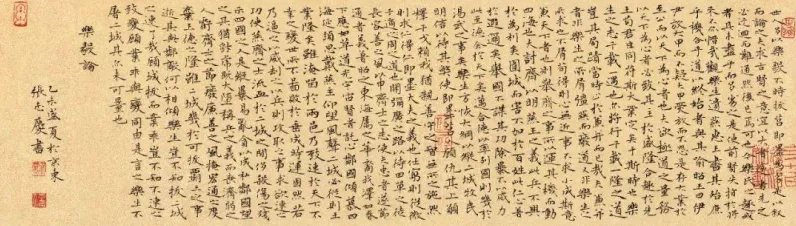 世人多以樂毅不時拔莒即墨為劣是以敘
而論之夫求古賢之意宜以大者遠者先之
必迂迴而難通然後已焉可也今樂氏之趣或
者其未盡乎而多劣之是使前賢失指於將
來不亦惜哉觀樂生遺燕惠王書其殆庶
乎機合乎道以終始者與其喻昭王曰伊
尹放大甲而不疑大甲受放而不怨是存大業於
至公而以天下為心者也夫欲極道之量務
以天下為心者必致其主於盛隆合其趣於先
王苟君臣同符斯大業定矣于斯時也樂
生之志千載一遇也亦將行千載一隆之道
豈其局蹟當時止於兼并而已哉夫兼并
者非樂生之所屑彊燕而廢道又非樂生之所
求也不屑苟得則心無近事不求小成斯意
兼天下者也則舉齊之事所以運其機而動
四海也夫討齊以明燕主之義此兵不興
於為利矣圍城而害不加於百姓此仁心著
於遐邇矣舉國不謀其功除暴不以威力
此至德令於天下矣邁至德以率列國則幾於
湯武之事矣樂生方恢大綱以縱二城牧民
明信以待其弊使即墨莒人顧仇其上願
釋干戈賴我猶親善守之智無所之施然
則求仁得仁即墨大夫之義也任窮則從微
子適周之道也開彌廣之路以待田單之徒
長容善之風以申齊士之志使夫忠者遂節
通者義著昭之東海屬之華裔我澤如春
下應如草道光宇宙賢者託心鄰國傾慕四
海延頸思戴燕主仰望風聲二城必從則王
業隆矣雖淹留於兩邑乃致速於天下不
幸之變世所不圖敗於垂成時運固然若
乃逼之以威劫之以兵則攻取之事求欲速之
功使燕齊之士流血於二城之間侈殺傷之殘
示四國之人是縱暴易亂貪以成私鄰國望
之其猶豺虎既大墮稱兵之義而喪濟弱之
仁虧齊士之節廢廉善之風掩宏通之度
棄王德之隆雖二城幾於可拔霸王之事
逝其與鄰敵何以相傾樂生豈不知拔二城
之速了哉顧城拔而業乖豈不知不速之
致變顧業乖與變同由是言之樂生不
屠二城其亦未可量也
樂毅論
乙未盛夏於京東
張志慶書